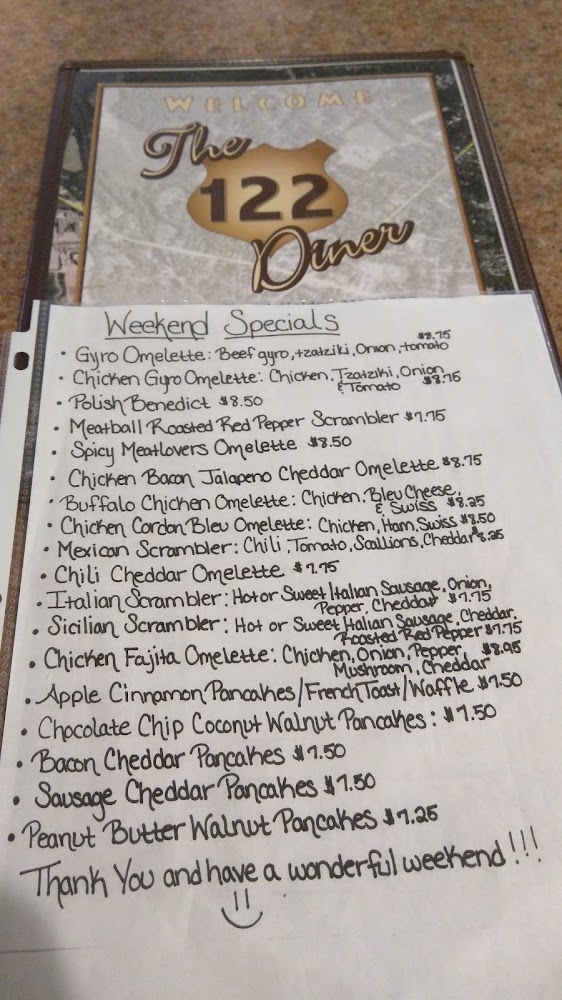 WELCOME
The
122
Diner
Weekend Specials
• Gyro Omelette: Beef gyro, tzatziki, Onion, tomato $8.75
• Chicken Gyro Omelette: Chicken, Tzatziki, Onion
& Tomato $8.75
• Polish Benedict $8.50
• Meatball Roasted Red Pepper Scrambler $7.75
• Spicy Meatlovers Omelette $8.50
• Chicken Bacon Jalapeno Cheddar Omelette $8.75
• Buffalo Chicken Omelette: Chicken, Bleu Cheese,
& Swiss $8.25
• Chicken Cordon Bleu Omelette: Chicken, Ham, Swiss $8.50
• Mexican Scrambler: Chili, Tomato, Scallions, Cheddar $8.25
• Chili Cheddar Omelette $7.75
• Italian Scrambler: Hot or Sweet Italian Sausage, Onion,
Pepper, Cheddar $7.75
• Sicilian Scrambler: Hot or Sweet Italian Sausage, Cheddar,
Roasted Red Pepper $7.75
• Chicken Fajita Omelette: Chicken, Onion, Pepper, $8.95
Mushroom, Cheddar
• Apple Cinnamon Pancakes/French Toast/Waffle $7.50
• Chocolate Chip Coconut Walnut Pancakes: $7.50
• Bacon Cheddar Pancakes $7.50
• Sausage Cheddar Pancakes $7.50
• Peanut Butter Walnut Pancakes $7.25
Thank You and have a wonderful weekend!!!